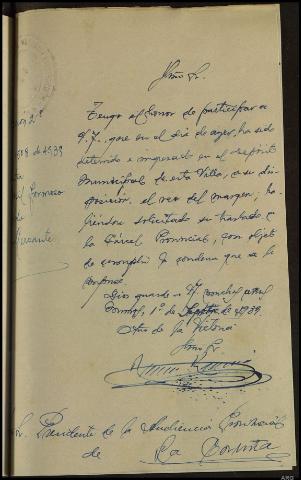 Ilmo Sr.
Tengo el honor de participar a
V.I. que en el dia de ayer, ha sido
detenido e ingresado en el depósito
Municipal de esta Villa, a su dis-
posición, el reo del margen; ha-
biendose solicitado su traslado a
la Cárcel Provincial, con objeto
de cumplir la condena que se le
impone.
Dios guarde a V.I. muchos años
1º de de 1939
Año de la Victoria
Ilmo Sr.
de 1939
Sr. Presidente de la Audiencia Provincial
de La Coruña
ARG